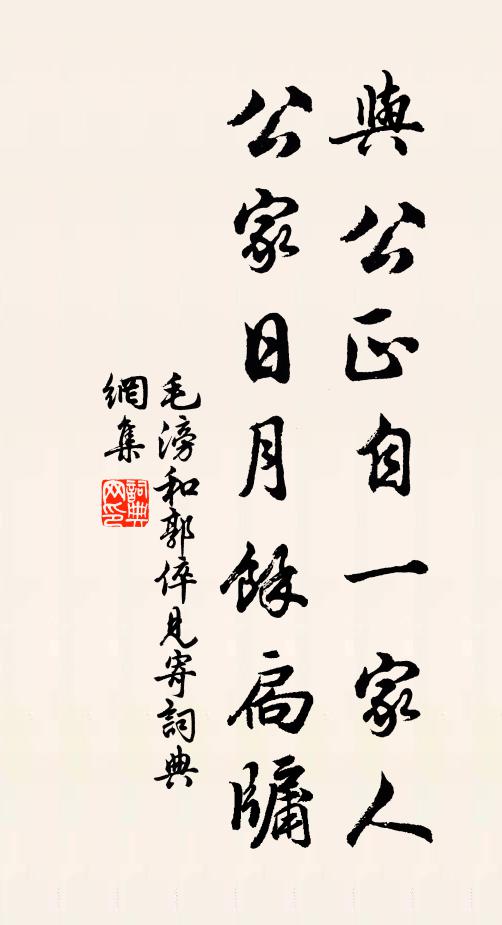 與公正自一家人
公家日月餘扃牖
毛滂和郭倅見寄詞典
網集
詞典
網印